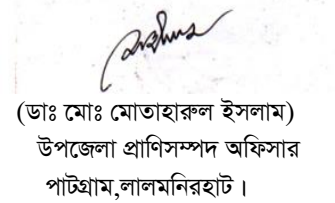 (ডাঃ মোঃ মোতাহারুল ইসলাম)
উপজেলা প্রাণিসম্পদ অফিসার
পাটগ্রাম,লালমনিরহাট।